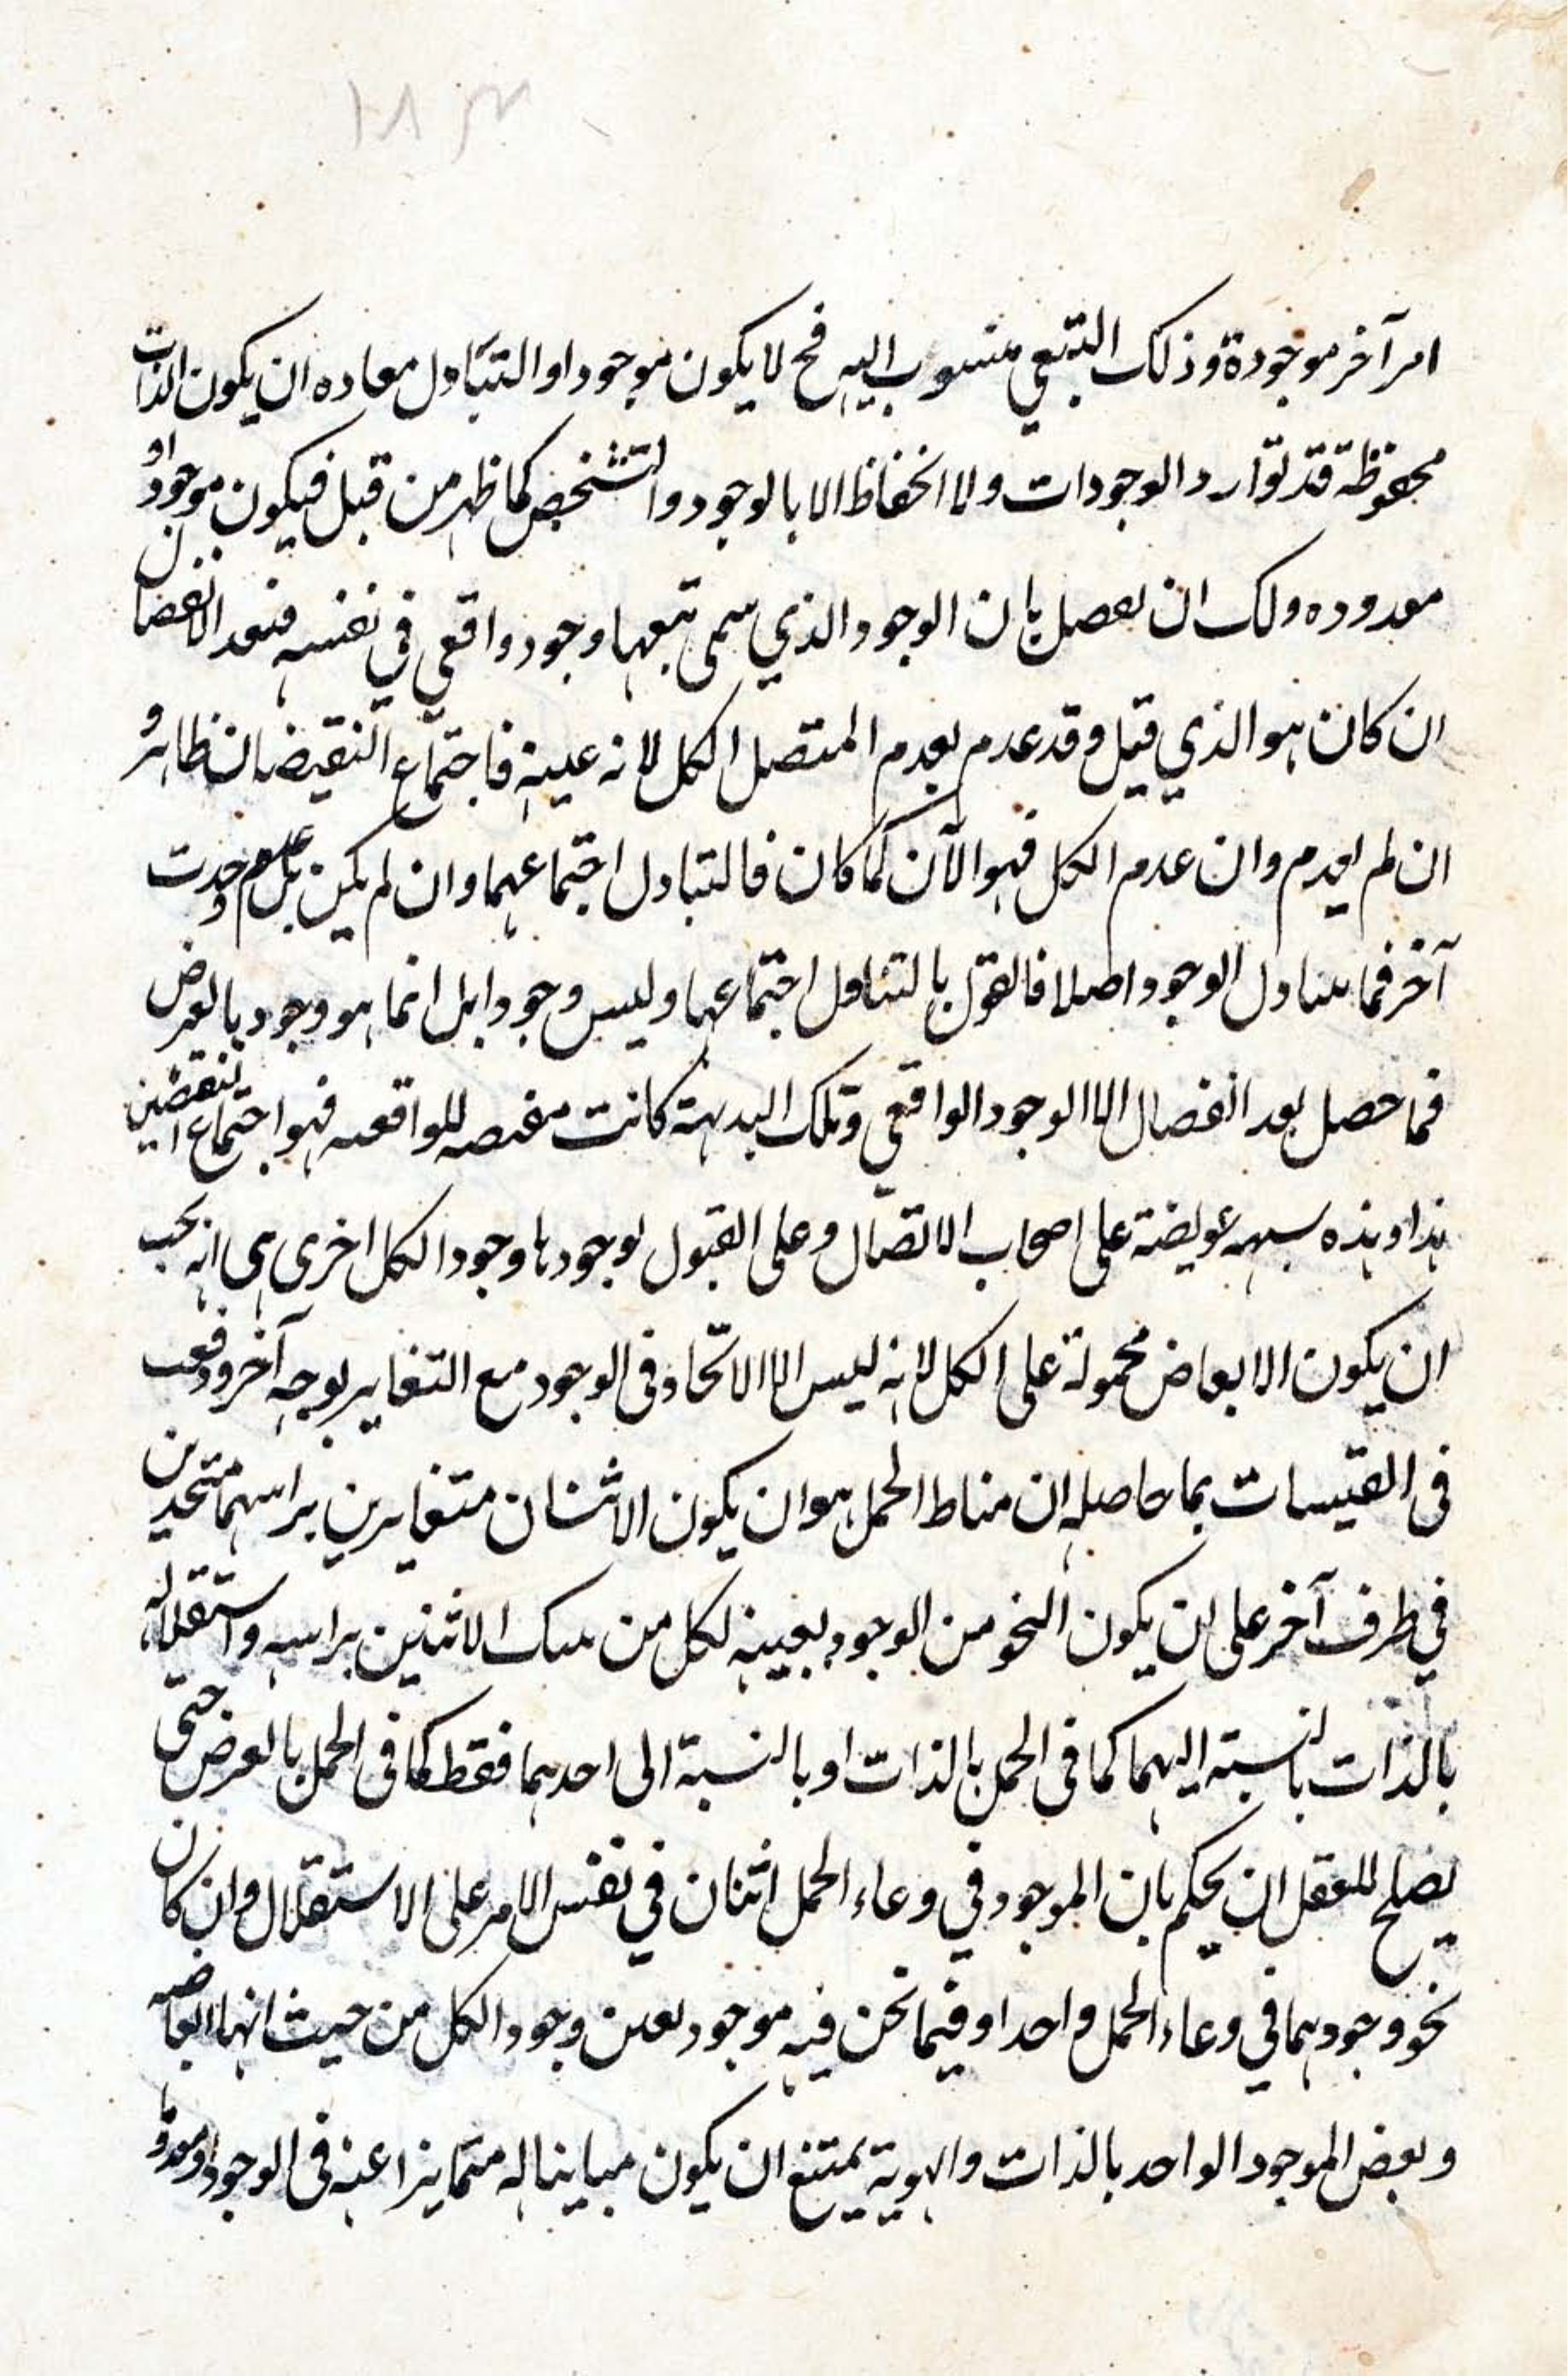 امر آخر موجودة وذلك التبعي منسوب اليه فح لا يكون موجودا والتبادل معاده ان يكون الذات
محفوظة قد توارد الوجودات ولا انحفاظ الا بالوجود والتشخص كما ظهر من قبل فيكون موجودا و
معدوده ولك ان تفصل بان الوجود الذي سمى تبعها وجود واقعي في نفسه فبعد الانفصال
ان كان هو الذي قيل وقد عدم بعدم المتصل الكل لانه عينه فاجتماع النقيضان ظاهر و
ان لم يعدم وان عدم الكل فهو الآن كما كان فالتبادل اجتماعهما وان لم يكن بل عدم وحدث
آخر فما تبادل الوجود اصلا فالقول بالتبادل اجتماعهما وليس وجودا بل انما هو وجود بالعرض
فما حصل بعد انفصال الا الوجود الواقعي وتلك البديهة كانت للواقعيه فهو اجتماع النقيضين
هذا وهذه شبهه عويصة على اصحاب الاتصال وعلى القبول بوجودها وجود الكل اخرى هي انه يجب
ان يكون الابعاض محمولة على الكل لانه ليس الا الاتحاد في الوجود مع التغاير بوجه آخر ودفعت
في القبسات بما حاصله ان مناط الحمل هو ان يكون الاثنان متغايرين براسهما متحدين
في ظرف آخر على ان يكون النحو من الوجود بعينه لكل من الاثنين براسه واستقلاله
بالذات بالنسبة اليهما كما في الحمل بالذات او بالنسبة الى احدهما فقط كما في الحمل بالعرض حتى
يصلح للعقل ان يحكم بان الموجود في وعاء الحمل اثنان في نفس الامر على الاستقلال وان كان
نحو وجودهما في وعاء الحمل واحدا وفيما نحن فيه موجود بعين وجود الكل من حيث انهما ابعاضه
وبعض الموجود الواحد بالذات والهوية يمتنع ان يكون مباينا له متمايزا عنه في الوجود